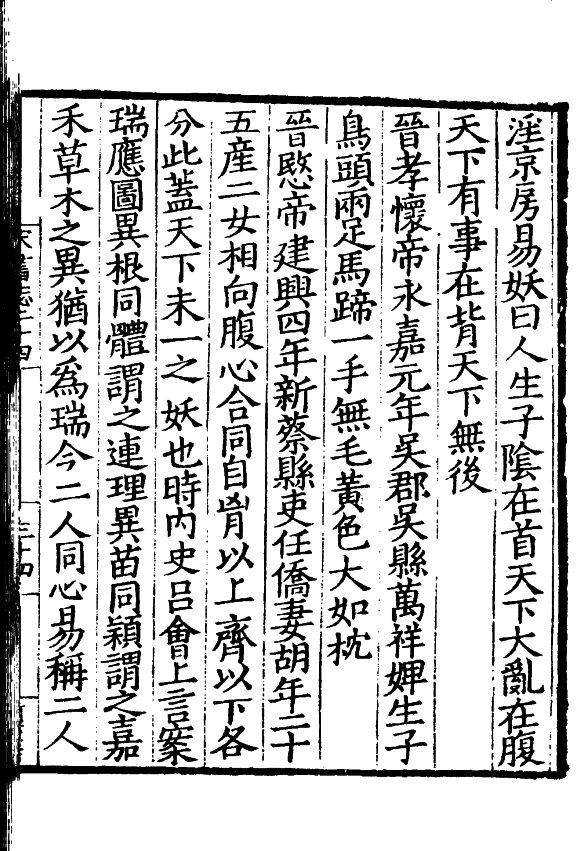 淫京房易妖曰人生子陰在首天下大亂在腹
天下有事在背天下無後
晉孝懷帝永嘉元年吳郡吳縣萬祥婢生子
鳥頭兩足馬蹄一手無毛黃色大如枕
晉愍帝建興四年新蔡縣吏任僑妻胡年二十
五產二女相向腹心合同自胷以上齊以下各
分此蓋天下未一之妖也時內史呂會上言案
瑞應圖異根同體謂之連理異苗同穎謂之嘉
禾草木之異猶以爲瑞今二人同心易稱二人